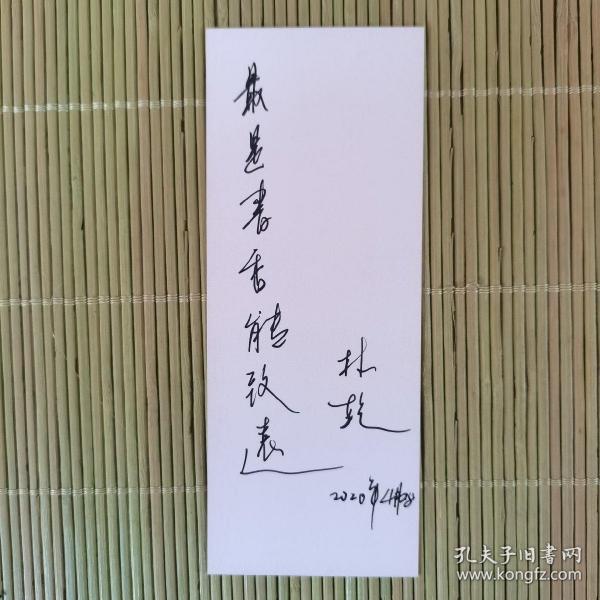 最是書香能致遠
林乾
2020年4月28
孔夫子旧書网
www.kongfz.com